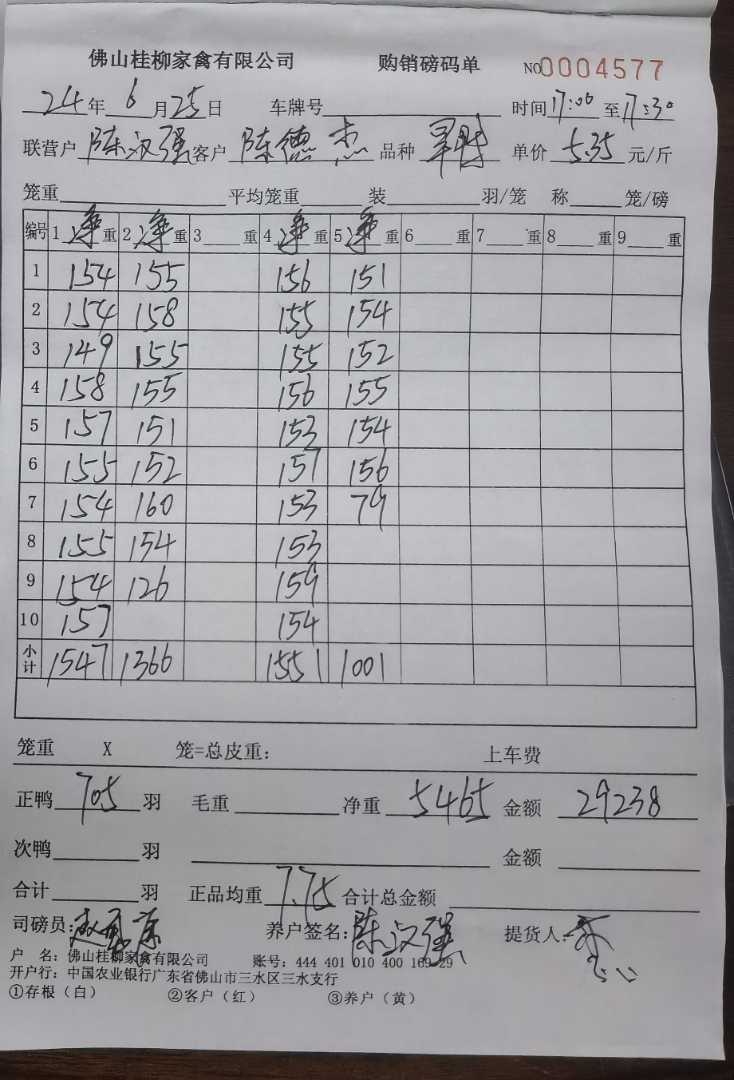 佛山桂柳家禽有限公司 购销磅码单 NO0004577
24年6月25日 车牌号 时间17:00至17:30
联营户 陈汉强 客户 陈德杰 品种 单价 5.35 元/斤
笼重 平均笼重 装 羽/笼 称 笼/磅
编号 1净重 2净重 3重 4净重 5净重 6重 7重 8重 9重
1 154 155 156 151
2 154 158 155 154
3 149 155 155 152
4 158 155 156 155
5 157 151 153 154
6 155 152 157 156
7 154 160 153 79
8 155 154 153
9 154 126 159
10 157 154
小计 1547 1366 1551 1001
笼重 X 笼=总皮重： 上车费
正鸭 705 羽 毛重 净重 5465 金额 29238
次鸭 羽 金额
合计 羽 正品均重 7.75 合计总金额
司磅员： 养户签名：陈汉强 提货人：
户 名：佛山桂柳家禽有限公司 账号：444 401 010 400 169 29
开户行：中国农业银行广东省佛山市三水区三水支行
①存根（白） ②客户（红） ③养户（黄）